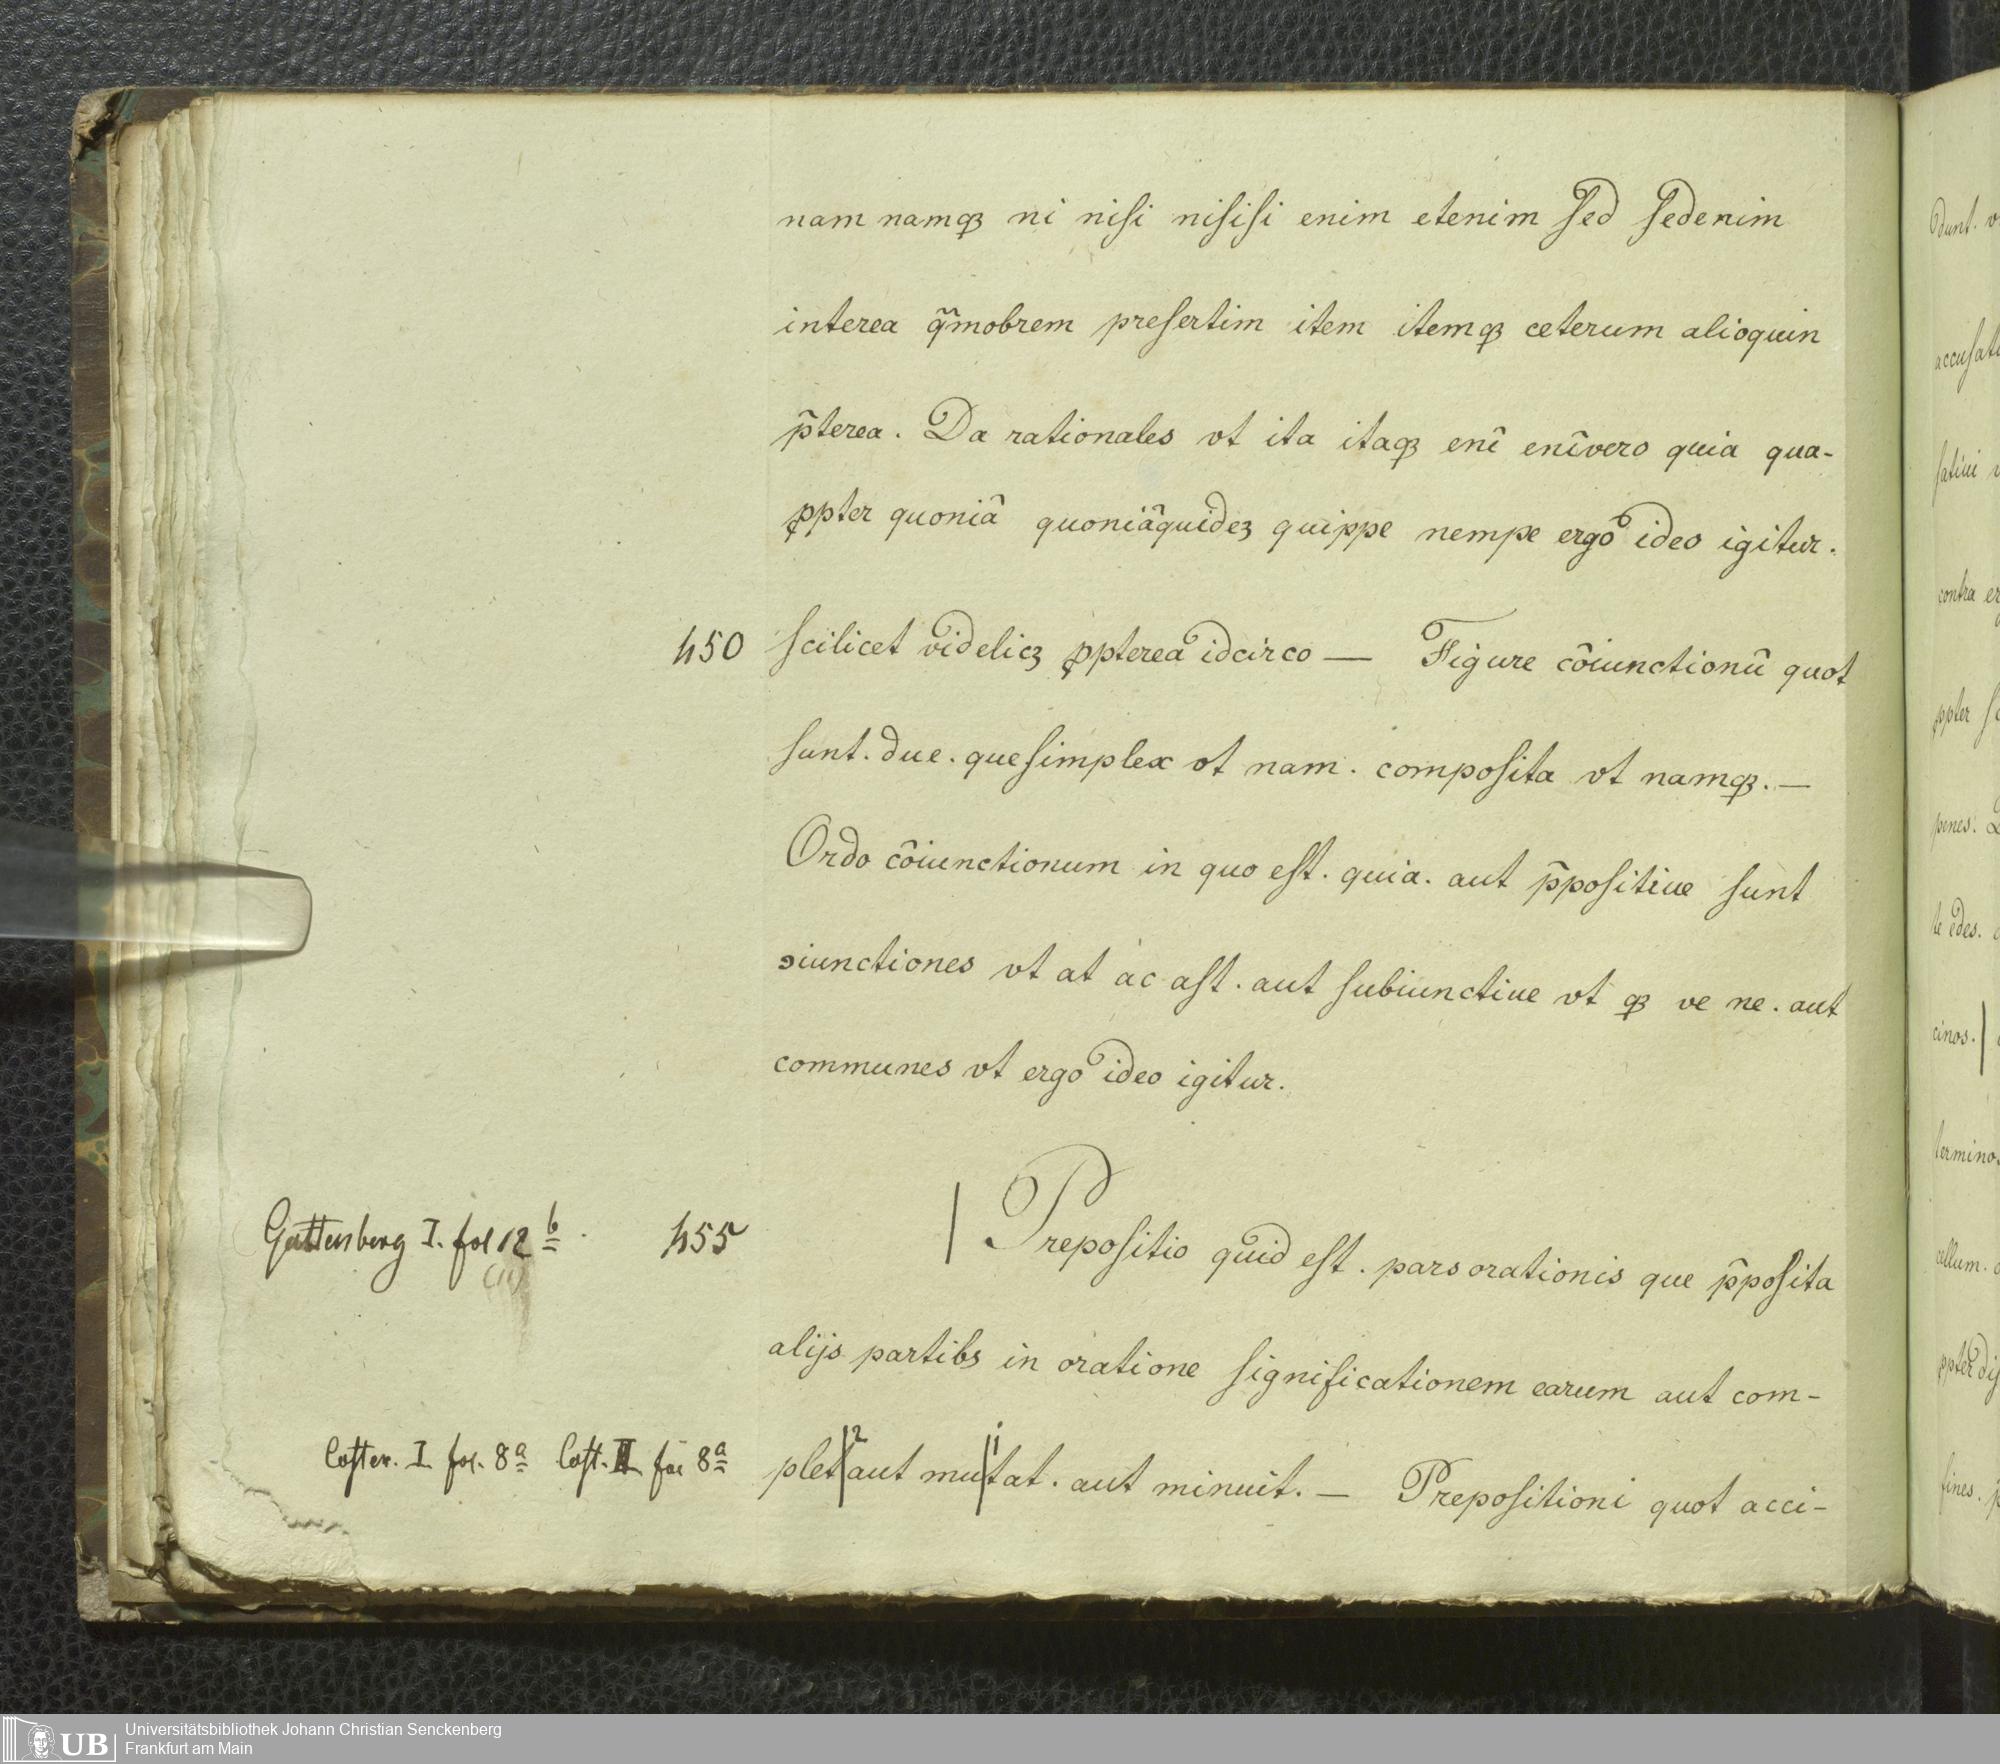 nam namqꝫ ni niſi niſiſi enim etenim ſed ſedenim
interea q̃mobrem preſertim item itemqꝫ ceterum alioquin
p̃terea. Da rationales vt ita itaqꝫ enĩ enĩvero quia qua-
ꝓpter quoniã quoniãquideꝫ quippe nempe ergo ideo igitur.
450 ſcilicet videlicꝫ ꝓpterea idcirco — Figure cõiunctionũ quot
ſunt. due. que ſimplex vt nam. compoſita vt namqꝫ. —
Ordo cõiunctionum in quo eſt. quia. aut p̃poſitiue ſunt
ↄiunctiones vt at ac aſt. aut ſubiunctiue vt qꝫ ve ne. aut
communes vt ergo ideo igitur.
Guttenberg I. fol 12 b 455 | Prepoſitio quid eſt. pars orationis que p̃poſita
(11)
alijs partibs in oratione ſignificationem earum aut com-
Coſter. I. fol. 8 a Coſt. II. fol 8 a plet|2 aut mu|1tat. aut minuit. — Prepoſitioni quot acci-
dunt.
accuſati
ſatiui
contra
ꝓpter
penes.
te edes.
cinos. |
termino
cellum.
ꝓpter diſ
fines.
UB Universitätsbibliothek Johann Christian Senckenberg
Frankfurt am Main